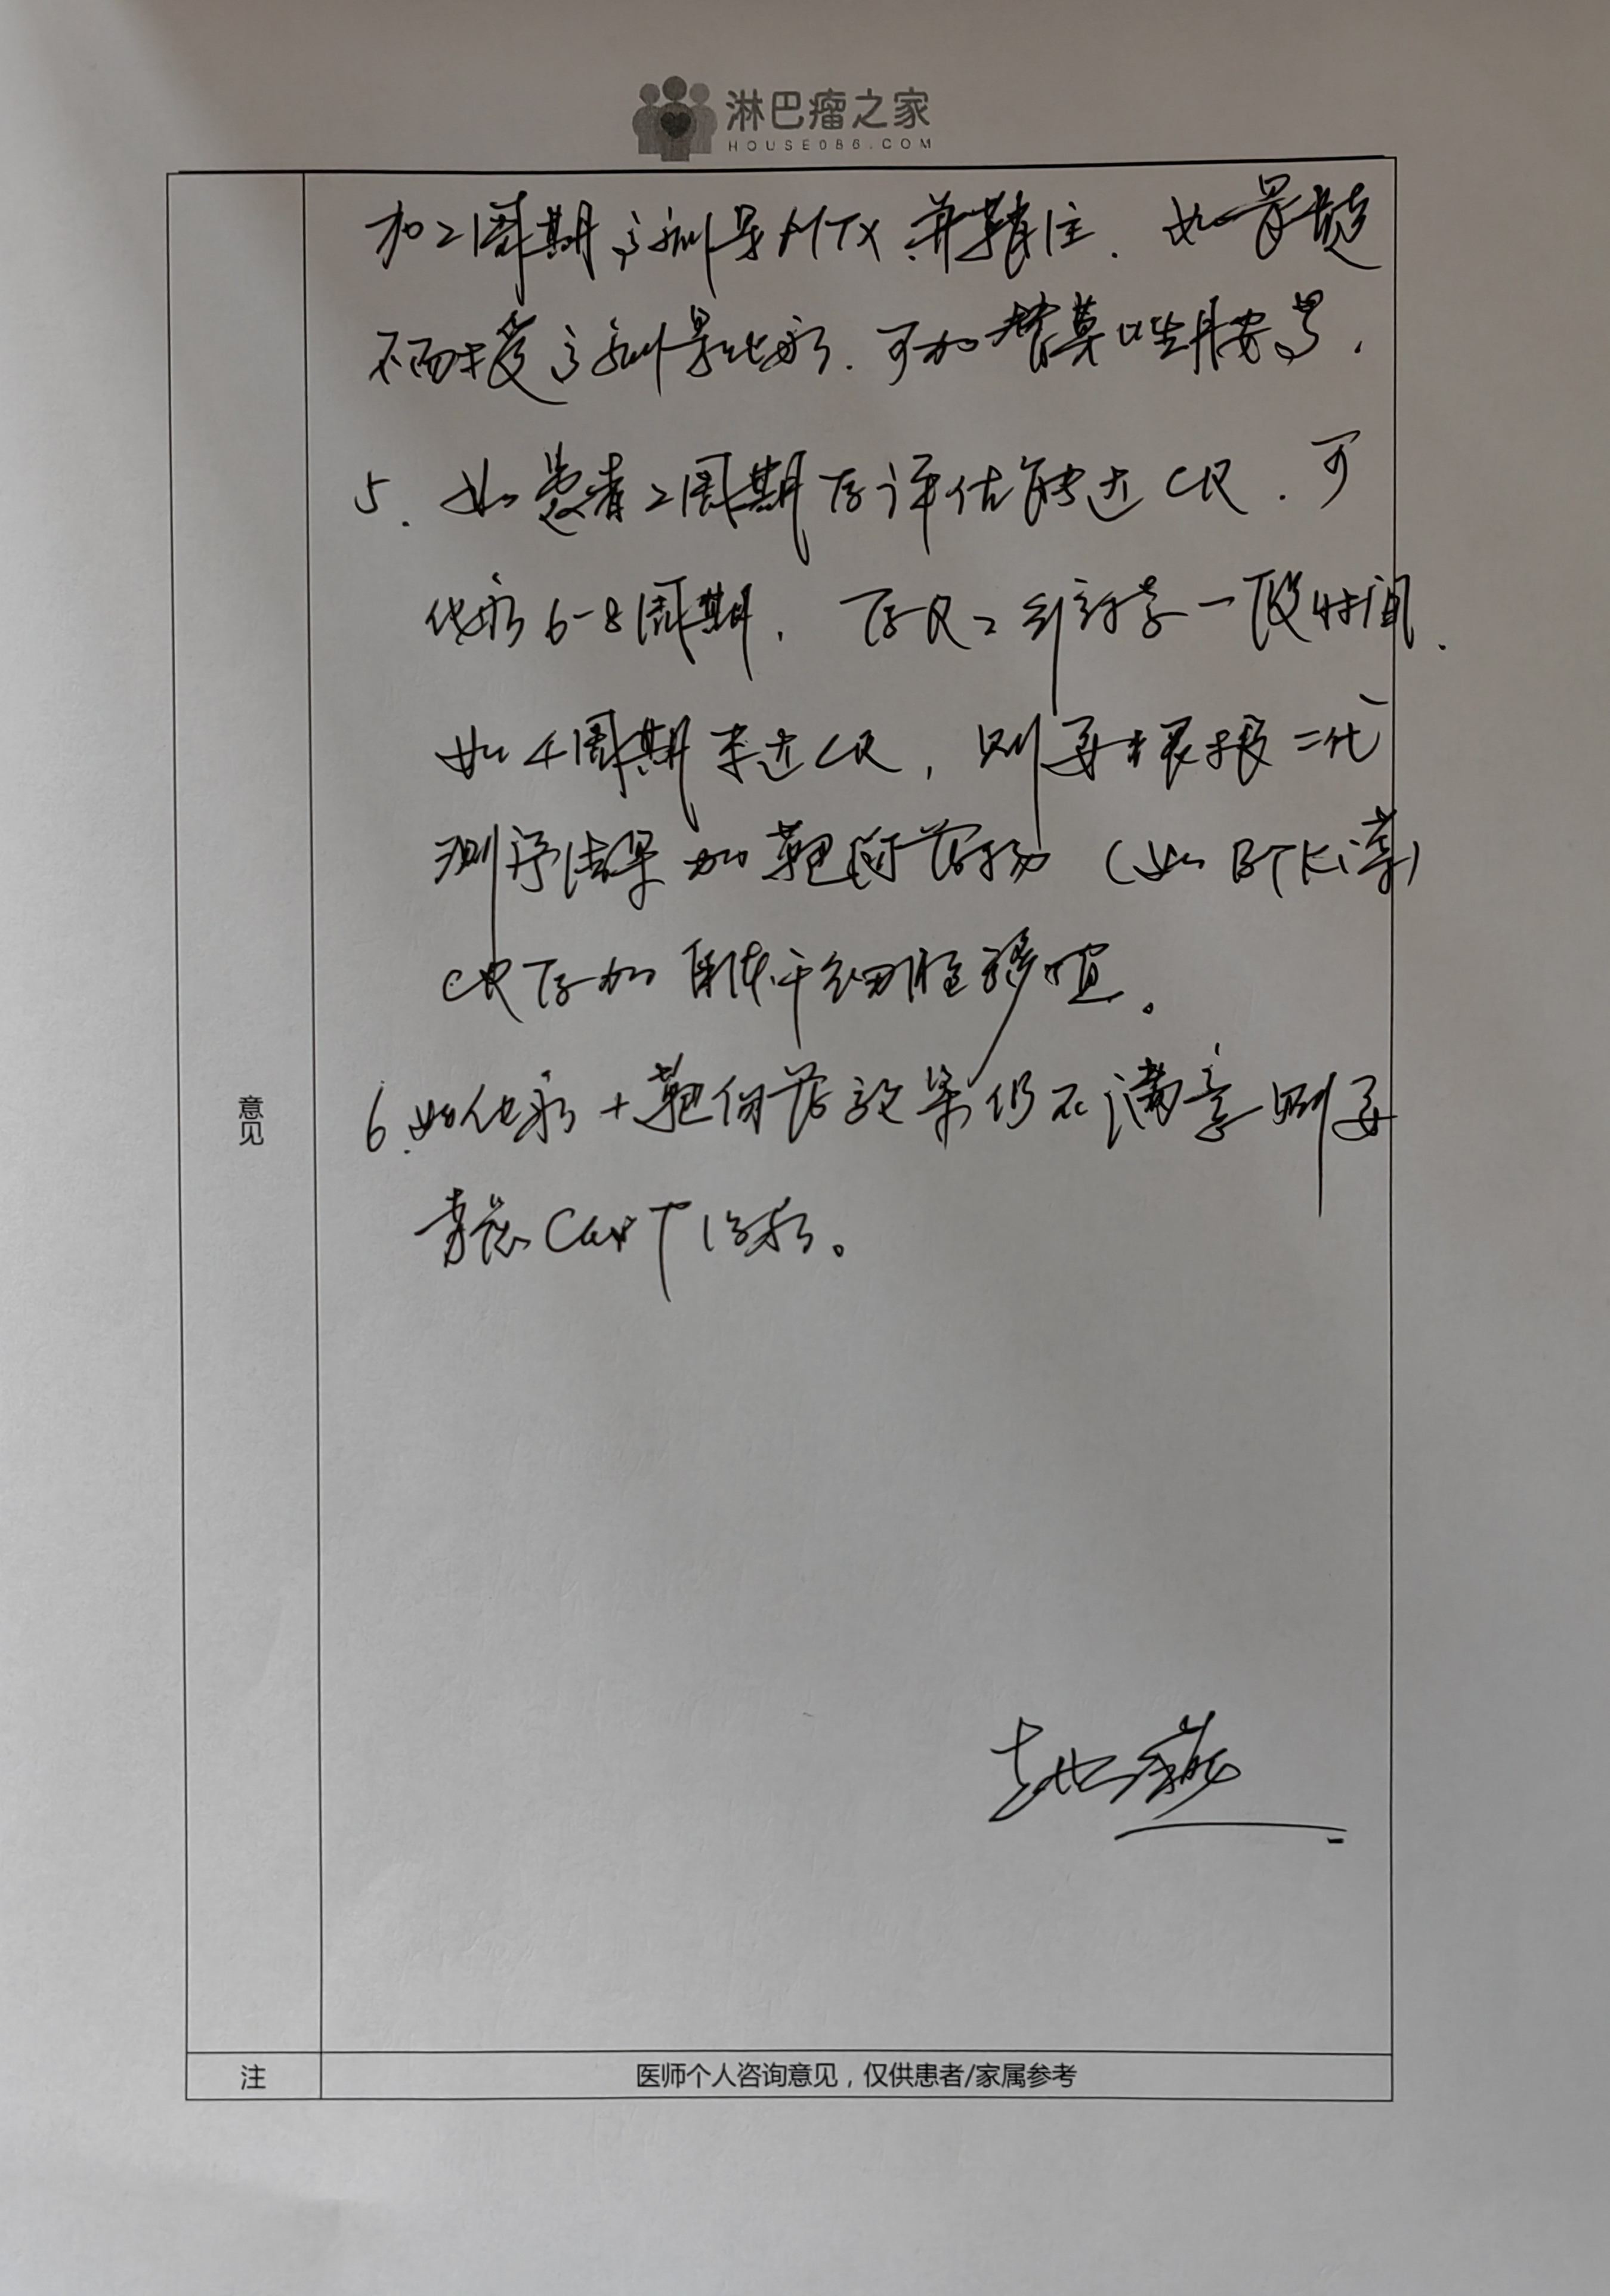 淋巴瘤之家
HOUSE086.COM
加2周期高剂量MTX 并鞘注. 如骨髓
不耐受高剂量化疗. 可加替莫唑胺等.
5. 如患者2周期后评估能达CR. 可
化疗6-8周期, 后R2维持 一段时间.
如4周期未达CR, 则要根据二代
测序结果加靶向药物 (如BTKi等)
CR后加自体干细胞移植。
意见
6. 如化疗+靶向药效果仍不满意则要
考虑CarT治疗。
注
医师个人咨询意见，仅供患者/家属参考